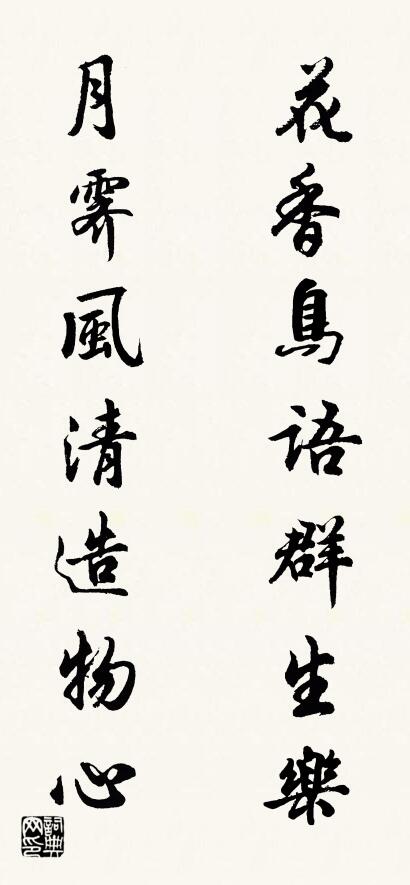 花香鳥語群生樂
月霽風清造物心
詞典网印